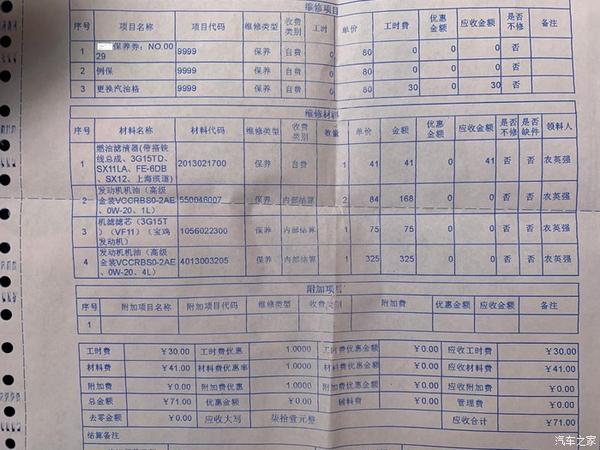 维修项目
序号 项目名称 项目代码 维修类型 收费类别 工时 单价 工时费 优惠金额 应收金额 是否不修 备注
1 保养券：NO.0029 9999 保养 自费 0 80 0 0 0 否
2 例保 9999 保养 自费 0 80 0 0 0 否
3 更换汽油格 9999 保养 自费 0 80 30 0 30 否
维修材料
序号 材料名称 材料代码 维修类型 收费类别 数量 单价 金额 优惠金额 应收金额 是否不修 是否缺件 领料人
1 燃油滤清器(带搭铁线总成、3G15TD、SX11LA、FE-6DB、SX12、上海滨道) 2013021700 保养 自费 1 41 41 0 41 否 否 农英强
2 发动机机油（高级金装VCCRBS0-2AE、0W-20、1L） 550046007 保养 内部结算 2 84 168 0 0 否 否 农英强
3 机滤滤芯（3G15T）（VF11）（宝鸡发动机） 1056022300 保养 内部结算 1 75 75 0 0 否 否 农英强
4 发动机机油（高级金装VCCRBS0-2AE、0W-20、4L） 4013003205 保养 内部结算 1 325 325 0 0 否 否 农英强
附加项目
序号 附加项目名称 附加项目代码 维修类型 收费类别 附加费 优惠金额 应收金额 备注
1
工时费 ￥30.00 工时费优惠 1.0000 工时费优惠金额 ￥0.00 应收工时费 ￥30.00
材料费 ￥41.00 材料费优惠率 1.0000 材料费优惠金额 ￥0.00 应收材料费 ￥41.00
附加费 ￥0.00 附加费优惠 1.0000 附加费优惠金额 ￥0.00 应收附加费 ￥0.00
总金额 ￥71.00 优惠金额 ￥0.00 辅料费 ￥0.00 管理费 ￥0.00
去零金额 ￥0.00 应收大写 柒拾壹元整 应收合计 ￥71.00
结算备注
汽车之家